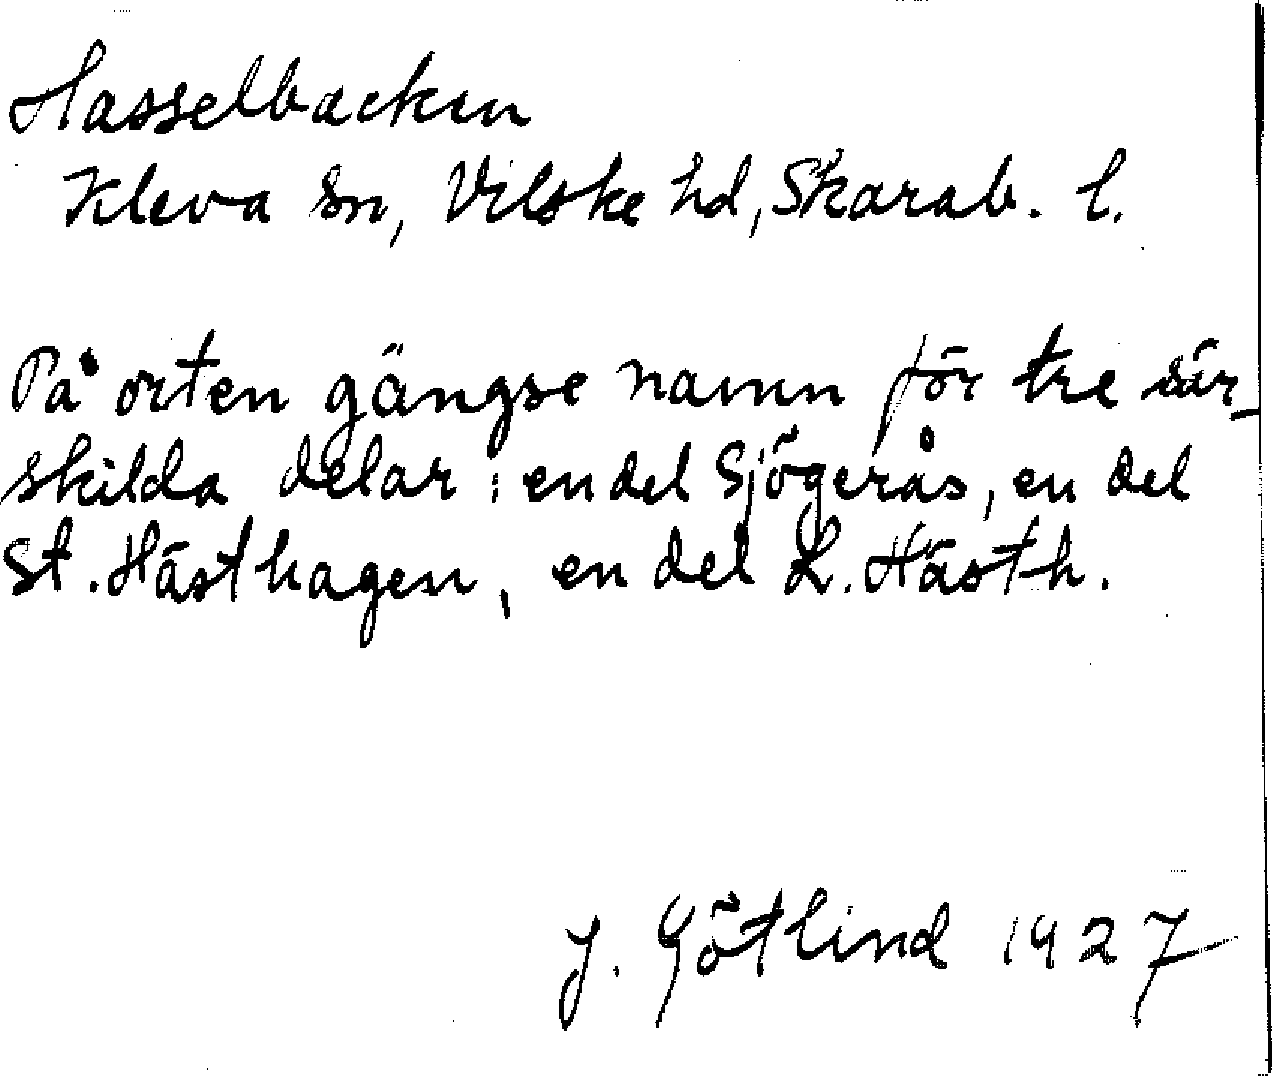 Hasselbacken
Kleva sn, Vilske hd, Skarab. l.
På orten gängse namn för tre sär-
skilda delar: en del Sjögerås, en del
St. Hästhagen, en del L. Hästh.
J. Götlind 1927